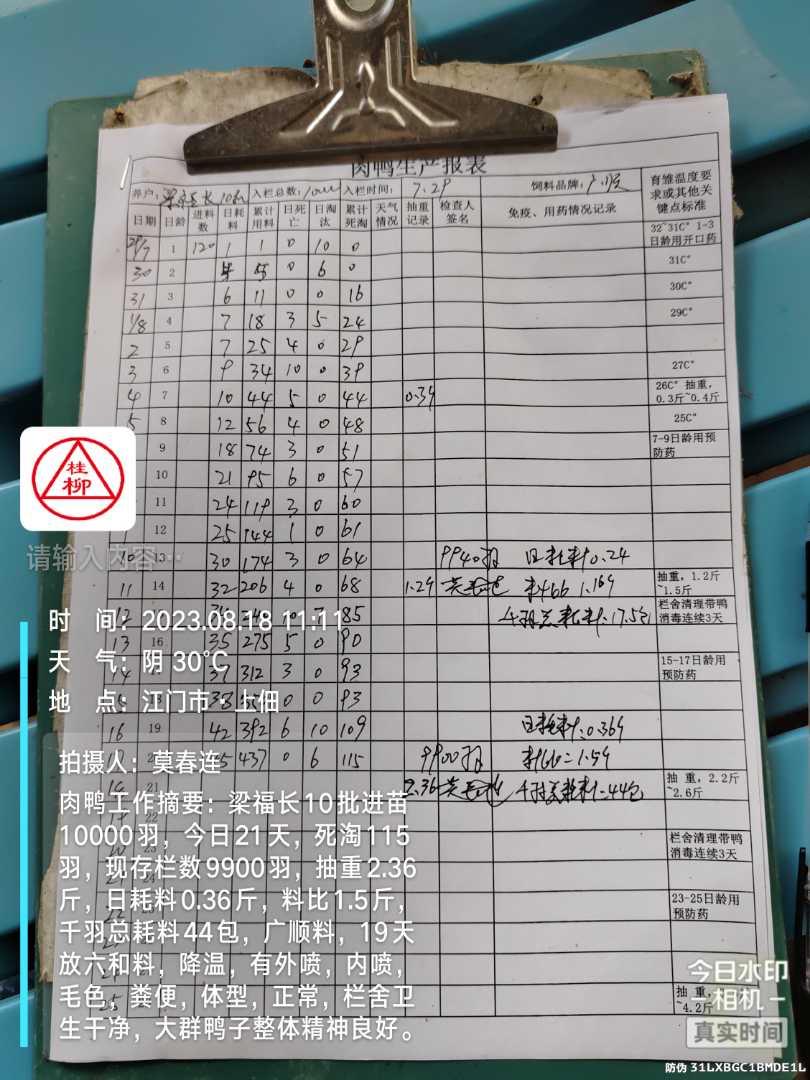 肉鸭生产报表
养户: 梁福长10批 入栏总数: 10000 入栏时间: 7.29 饲料品牌: 广顺 育雏温度要求或其他关键点标准
日期 日龄 进料数 日耗料 累计用料 日死亡 日淘汰 累计死淘 天气情况 抽重记录 检查人签名 免疫、用药情况记录
29/7 1 120 1 1 0 10 0 32~31C° 1-3日龄用开口药
30 2 0 6 0 31C°
31 3 6 11 0 0 16 30C°
1/8 4 7 18 3 5 24 29C°
2 5 7 25 4 0 29
3 6 9 34 10 0 39 27C°
4 7 10 44 5 0 44 0.39 26C° 抽重, 0.3斤~0.4斤
5 8 12 56 4 0 48 25C°
9 18 74 3 0 51 7-9日龄用预防药
10 21 95 6 0 57
11 24 119 3 0 60
12 25 144 1 0 61
10 13 30 174 3 0 64 9940羽 日耗料0.24
11 14 32 206 4 0 68 1.29 料比 1.169 抽重, 1.2斤~1.5斤
12 85 千羽总耗料:17.5包 栏舍清理带鸭消毒连续3天
13 16 35 275 5 0 90
37 312 3 0 93 15-17日龄用预防药
38 0 0 93
16 19 42 392 6 10 109 日耗料:0.369
437 0 6 115 9900羽 料比=1.59
21 2.36 千羽总耗料=44包 抽重, 2.2斤~2.6斤
栏舍清理带鸭消毒连续3天
23-25日龄用预防药
25 抽重, ~4.2斤
桂柳
请输入内容…
时 间: 2023.08.18 11:11
天 气: 阴 30℃
地 点: 江门市·上佃
拍摄人: 莫春连
肉鸭工作摘要: 梁福长10批进苗
10000羽, 今日21天, 死淘115
羽, 现存栏数9900羽, 抽重2.36
斤, 日耗料0.36斤, 料比1.5斤,
千羽总耗料44包, 广顺料, 19天
放六和料, 降温, 有外喷, 内喷,
毛色, 粪便, 体型, 正常, 栏舍卫
生干净, 大群鸭子整体精神良好。
今日水印
相机
真实时间
防伪 31LXBGC1BMDE1L